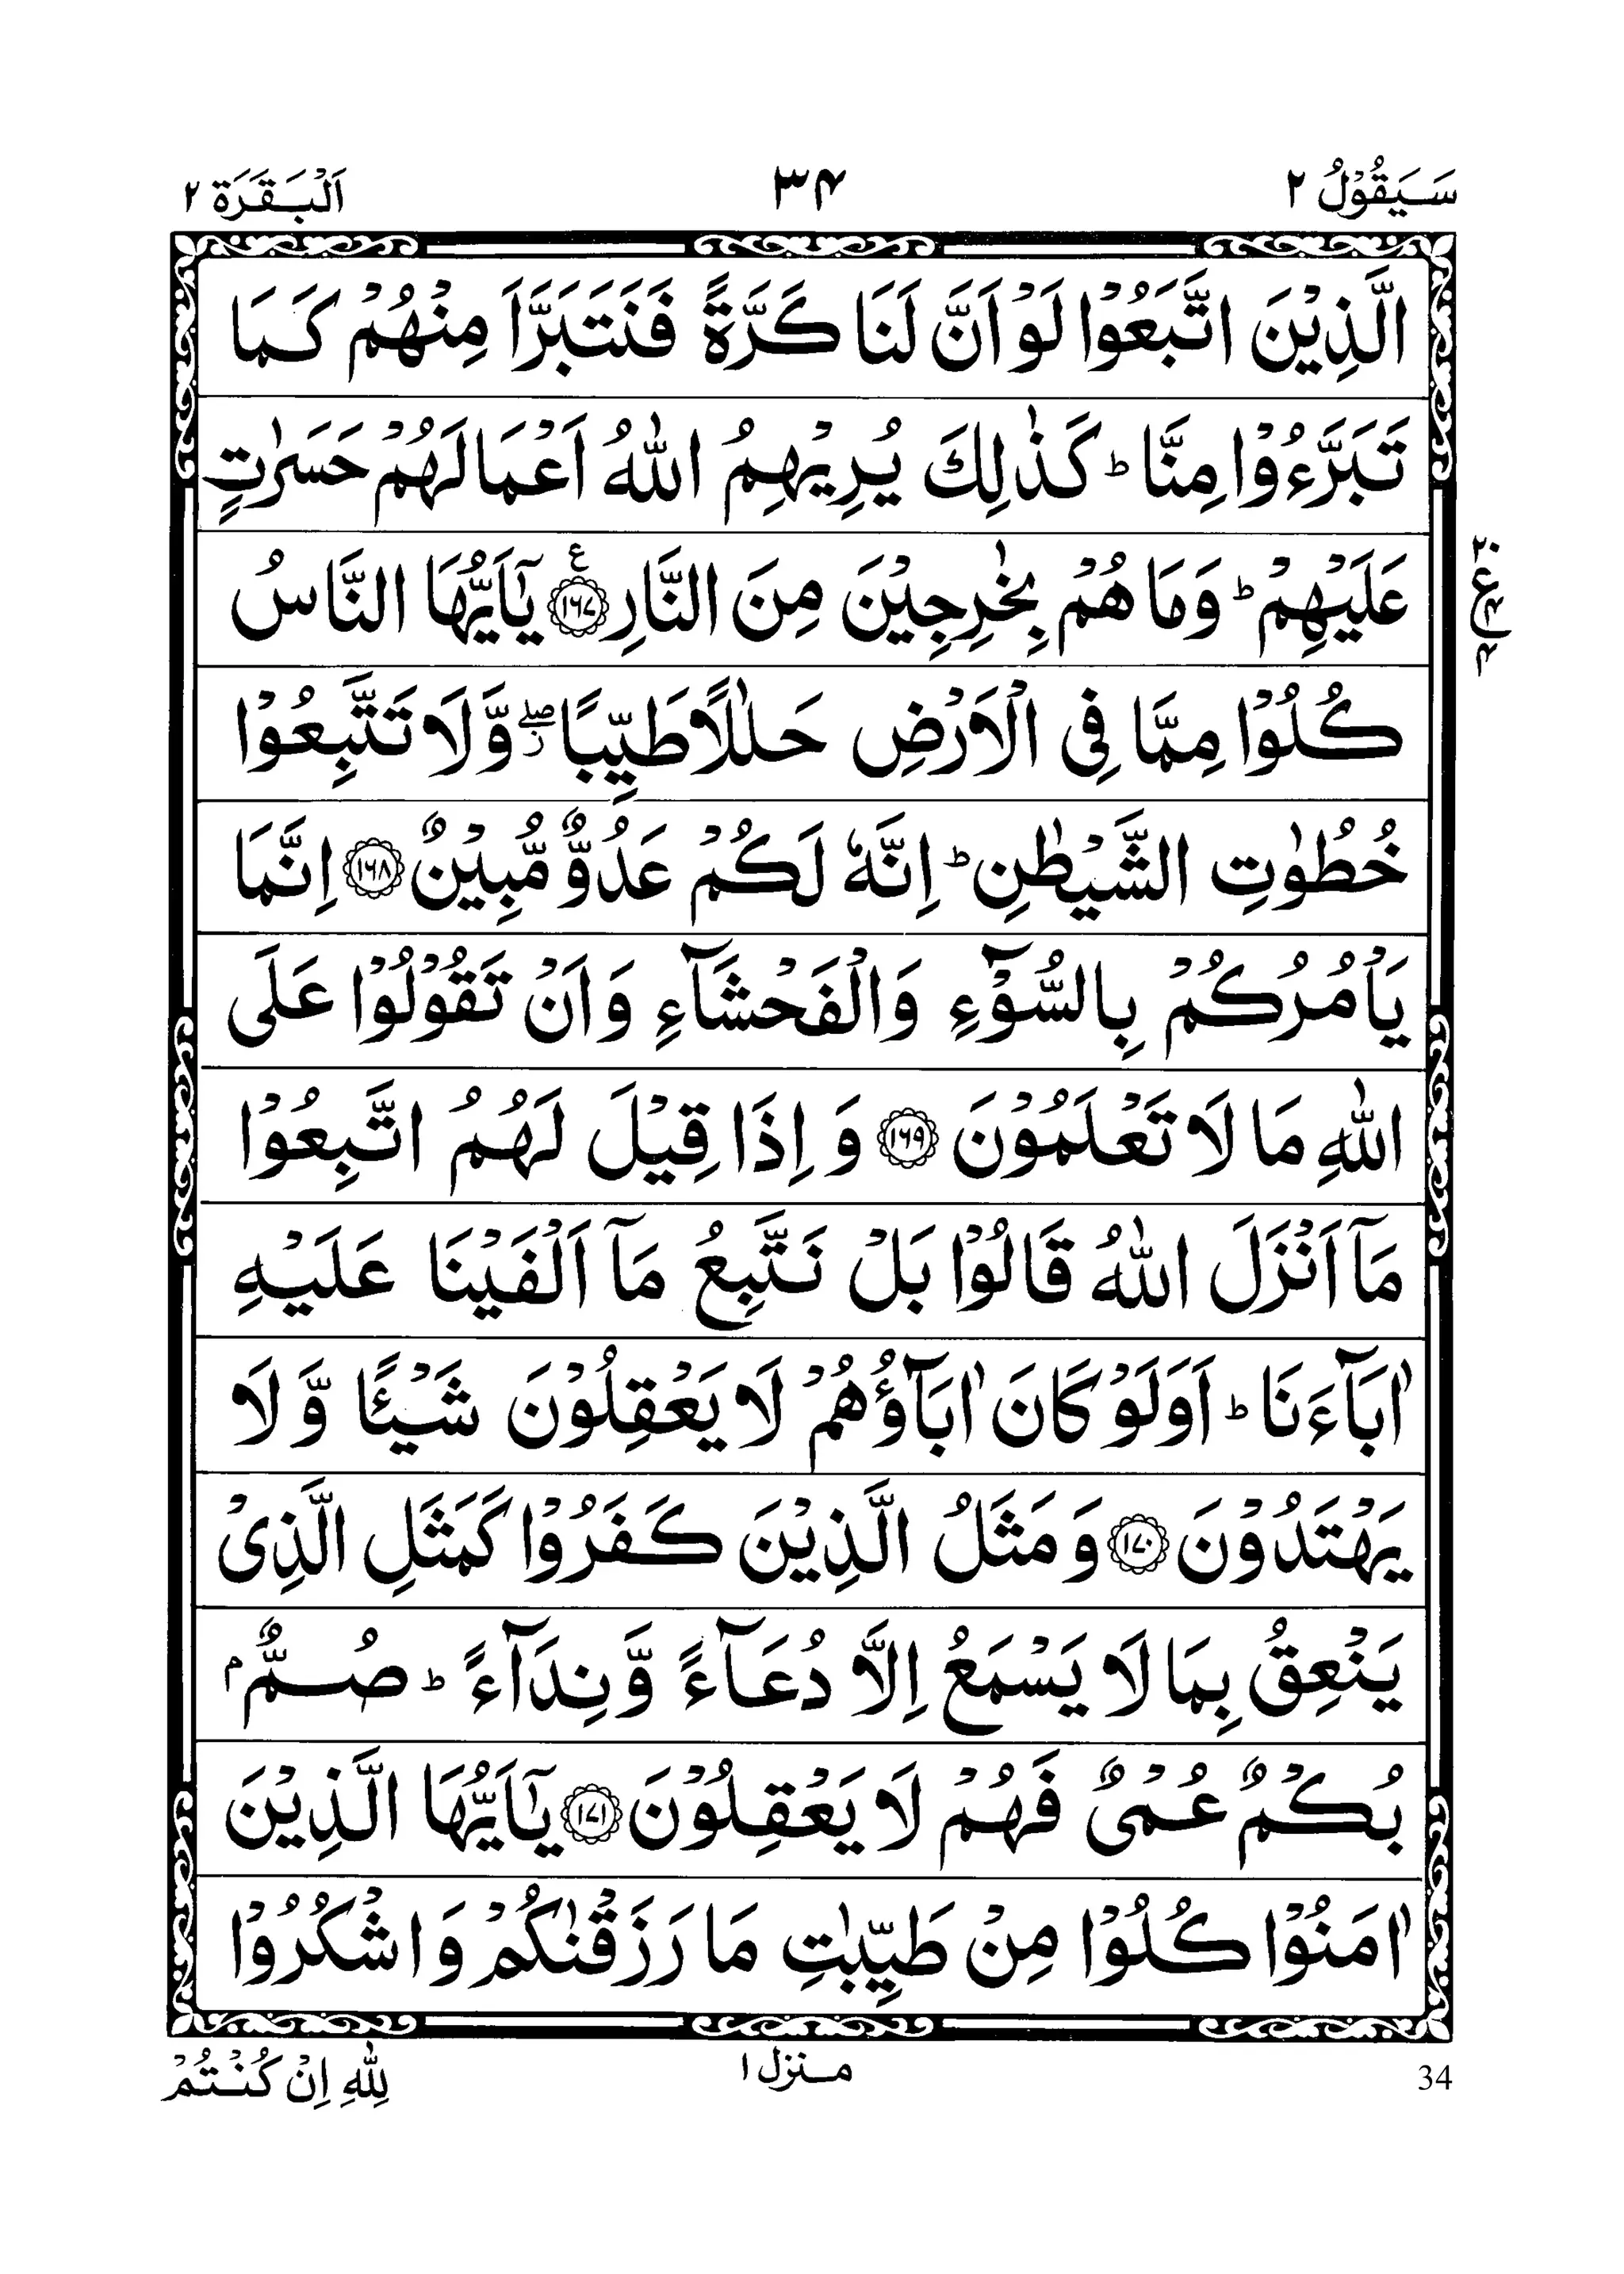 سَيَقُوْلُ ٢
٣۴
اَلْبَقَرَة ٢
الَّذِيْنَ اتَّبَعُوْا لَوْ اَنَّ لَنَا كَرَّةً فَنَتَبَرَّاَ مِنْهُمْ كَمَا
تَبَرَّءُوْا مِنَّا ؕ كَذٰلِكَ يُرِيْهِمُ اللّٰهُ اَعْمَالَهُمْ حَسَرٰتٍ
عَلَيْهِمْ ؕ وَمَا هُمْ بِخٰرِجِيْنَ مِنَ النَّارِ ۧ ﴿۱۶۷﴾ يٰۤاَيُّهَا النَّاسُ
كُلُوْا مِمَّا فِى الْاَرْضِ حَلٰلًا طَيِّبًا ۖ ز وَّلَا تَتَّبِعُوْا
خُطُوٰتِ الشَّيْطٰنِ ؕ اِنَّهٗ لَكُمْ عَدُوٌّ مُّبِيْنٌ ﴿۱۶۸﴾ اِنَّمَا
يَاْمُرُكُمْ بِالسُّوْٓءِ وَالْفَحْشَآءِ وَاَنْ تَقُوْلُوْا عَلَى
اللّٰهِ مَا لَا تَعْلَمُوْنَ ﴿۱۶۹﴾ وَ اِذَا قِيْلَ لَهُمُ اتَّبِعُوْا
مَآ اَنْزَلَ اللّٰهُ قَالُوْا بَلْ نَتَّبِعُ مَآ اَلْفَيْنَا عَلَيْهِ
اٰبَآءَنَا ؕ اَوَلَوْ كَانَ اٰبَآؤُهُمْ لَا يَعْقِلُوْنَ شَيْـًٔا وَّ لَا
يَهْتَدُوْنَ ﴿۱۷۰﴾ وَ مَثَلُ الَّذِيْنَ كَفَرُوْا كَمَثَلِ الَّذِىْ
يَنْعِقُ بِمَا لَا يَسْمَعُ اِلَّا دُعَآءً وَّ نِدَآءً ؕ صُمٌّۢ
بُكْمٌ عُمْىٌ فَهُمْ لَا يَعْقِلُوْنَ ﴿۱۷۱﴾ يٰۤاَيُّهَا الَّذِيْنَ
اٰمَنُوْا كُلُوْا مِنْ طَيِّبٰتِ مَا رَزَقْنٰكُمْ وَ اشْكُرُوْا
34
منزل ١
لِلّٰهِ اِنْ كُنْتُمْ